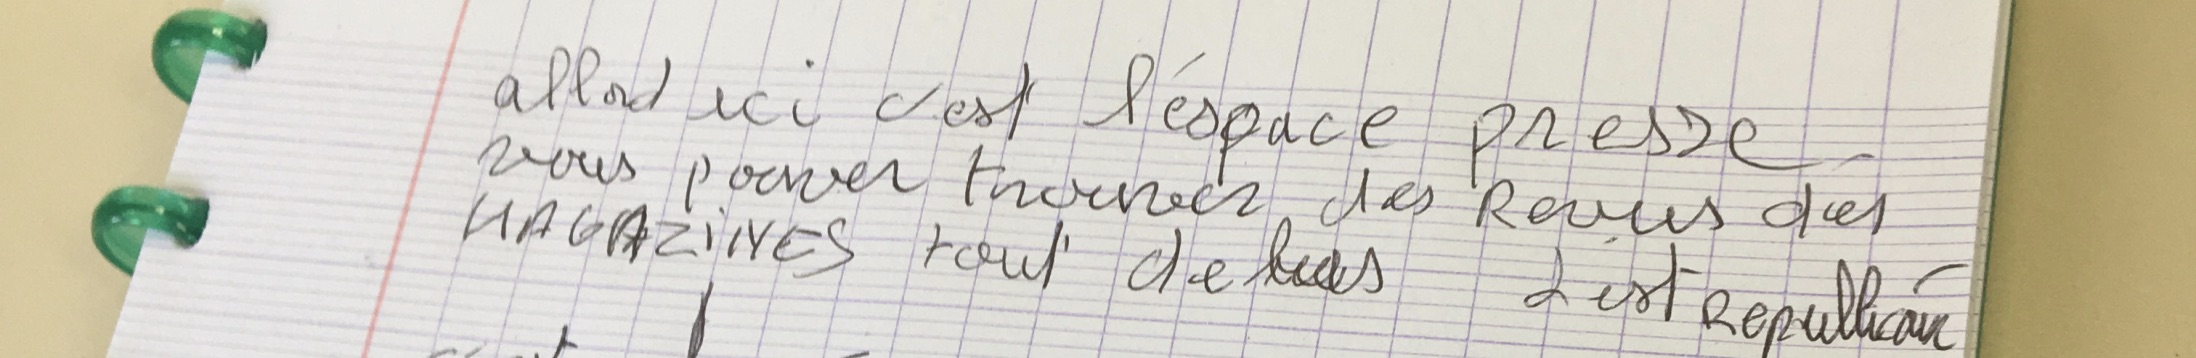 allod ici c'est l'éspace presse
vous pouver trouver des Revus des
MAGAZINES tout de L'est Republicain